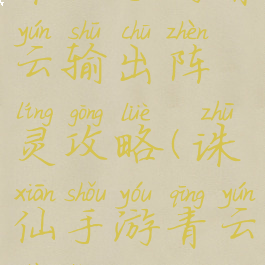 yún shū chū zhèn
云输出阵
líng gōng lüè zhū
灵攻略(诛
xiān shǒu yóu qīng yún
仙手游青云